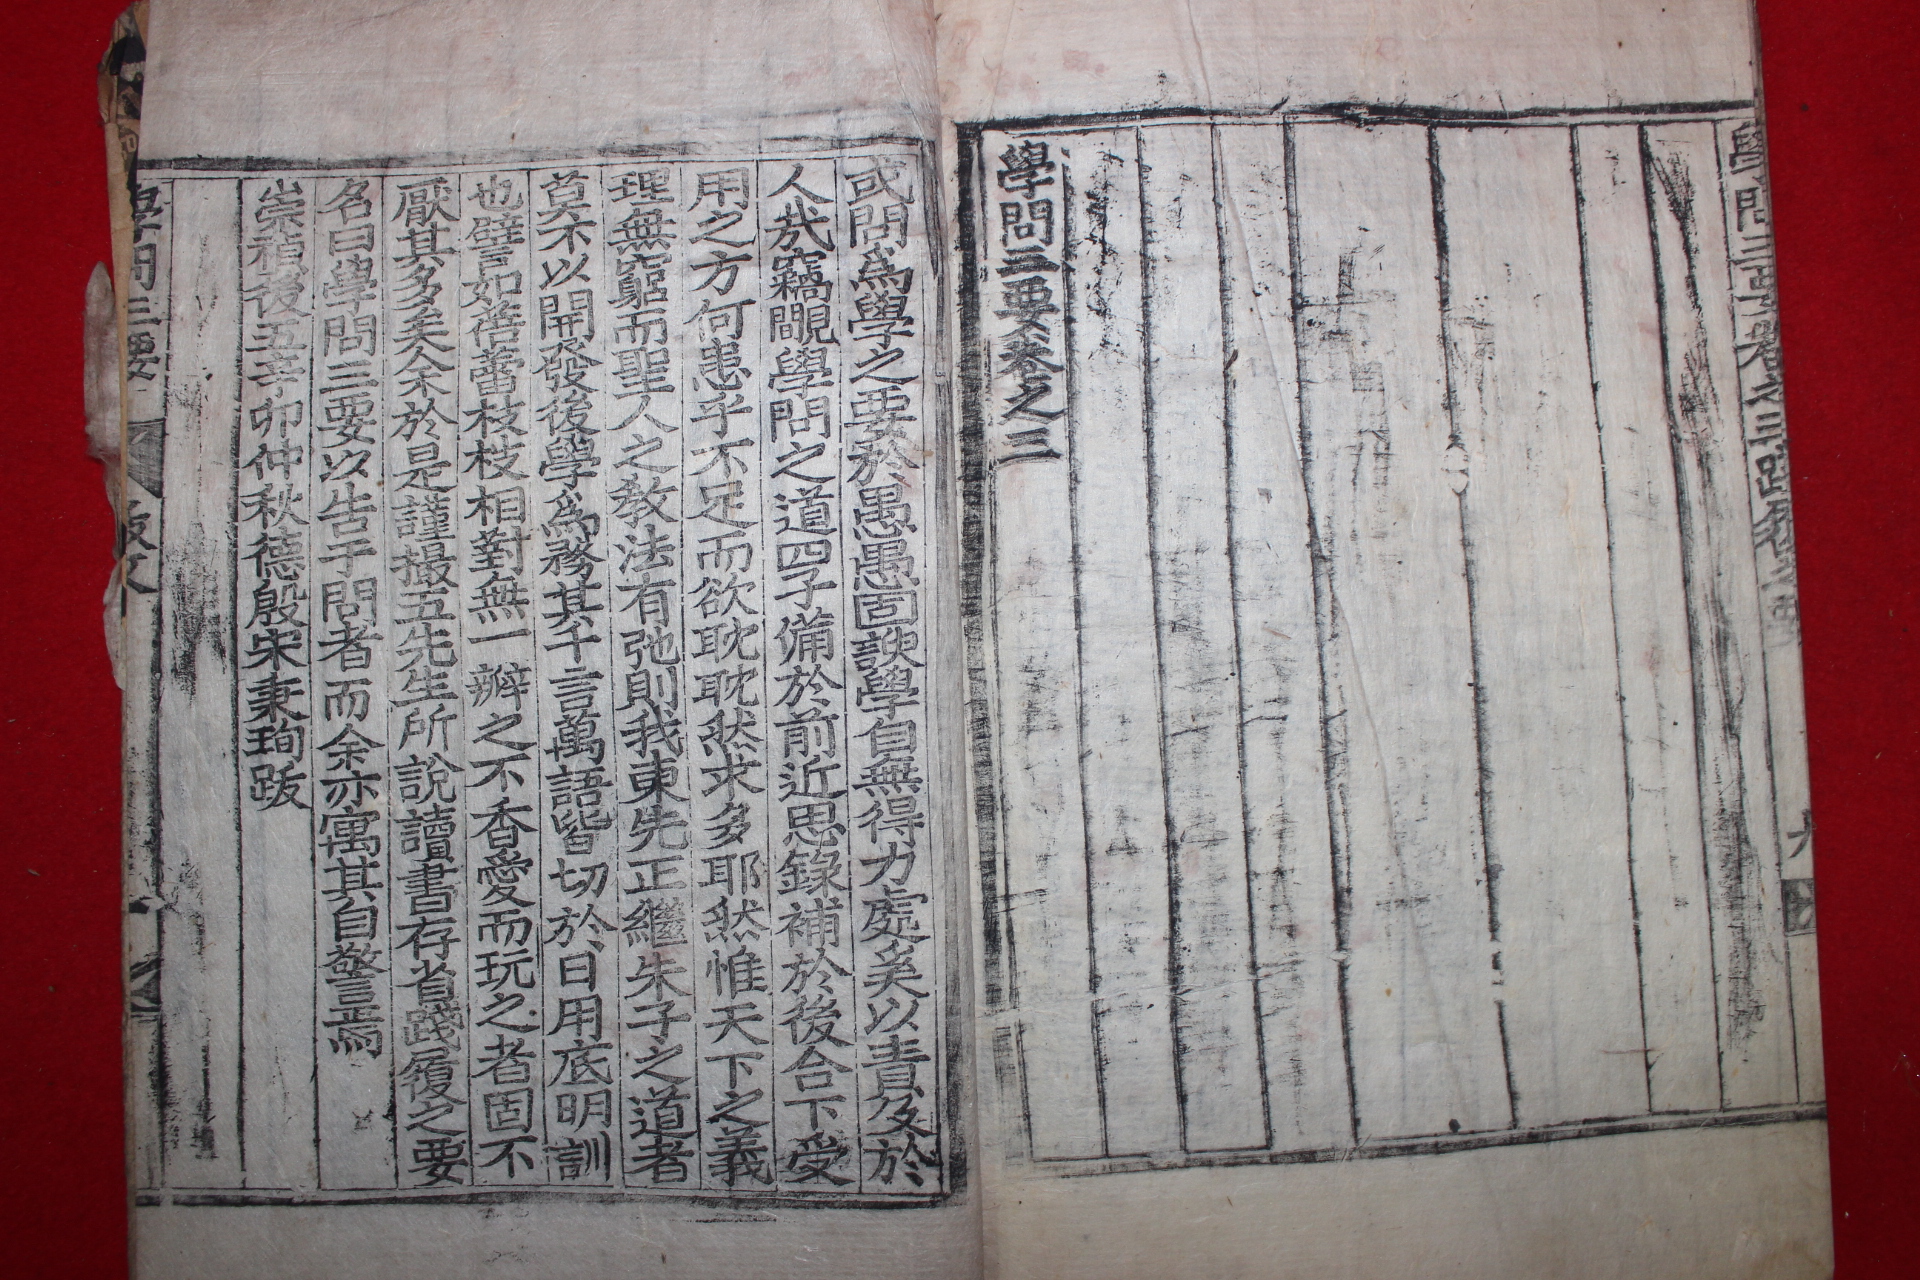 學問三要卷之三
或問爲學之要於愚愚固謏學自無得力處奚以責及於
人哉竊覵學問之道四子備於前近思錄補於後合下受
用之方何患乎不足而欲耽耽然求多耶然惟天下之義
理無窮而聖人之教法有弛則我東先正繼朱子之道者
莫不以開發後學爲務其千言萬語皆切於日用底明訓
也譬如蓓蕾枝枝相對無一瓣之不香愛而玩之者固不
厭其多矣余於是謹撮五先生所說讀書存省踐履之要
名曰學問三要以告于問者而余亦寓其自警焉
崇禎後五辛卯仲秋德殷宋秉珣跋
學問三要 跋文 一